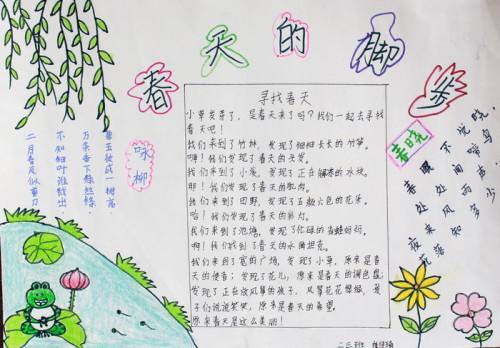 春天的脚步
咏柳
碧玉妆成一树高，
万条垂下绿丝绦。
不知细叶谁裁出，
二月春风似剪刀
寻找春天
小草发芽了，是春天来了吗？我们一起去寻找
春天吧！
我们来到了竹林，发现了细细长长的竹笋。
啊！我们发现了春天的
我们来到了小溪，发现了正在融化的冰块。
耶！我们发现了春天的肌肉。
我们来到了田野，发现了五颜六色的花朵。
哈！我们发现了春天的
我们来到了池塘，发现了忙碌的青蛙好妈。
啊！我们找到了春天的
我们来到了宽的广场，发现了小草，原来是春天
的使者；发现了花儿，原来是春天的调色盘；
发现了正在放风筝的孩子，风筝花花绿绿，孩
子们说说笑笑，原来是春天的希望。
原来春天是这么美丽！
春晓
春眠不觉晓，
处处闻啼鸟
夜来风雨声
花落知多少
二三班